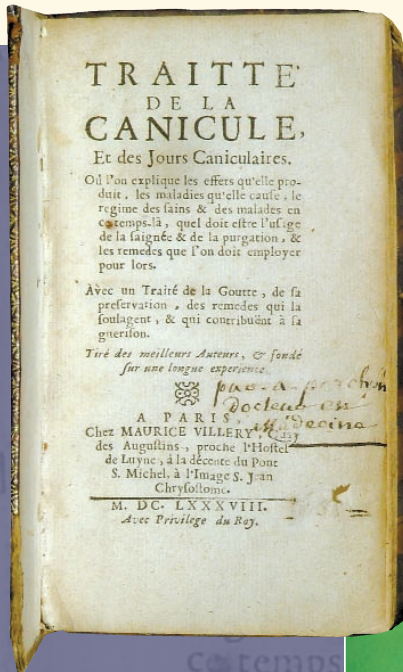 TRAITTE'
DE LA
CANICULE,
Et des Jours Caniculaires.
Où l'on explique les effets qu'elle pro-
duit, les maladies qu'elle cause, le
regime des sains & des malades en
ce temps-là, quel doit estre l'usage
de la saignée & de la purgation, &
les remedes que l'on doit employer
pour lors.
Avec un Traité de la Goutte, de sa
preservation, des remedes qui la
soulagent, & qui contribuënt à sa
guerison.
Tiré des meilleurs Auteurs, & fondé
sur une longue experience.
par a
docteur en
medecine
A PARIS,
Chez MAURICE VILLERY,
des Augustins, proche l'Hostel
de Luyne, à la décente du Pont
S. Michel, à l'Image S. Jean
Chrysostome.
M. DC. LXXXVIII.
Avec Privilege du Roy.
ce temps